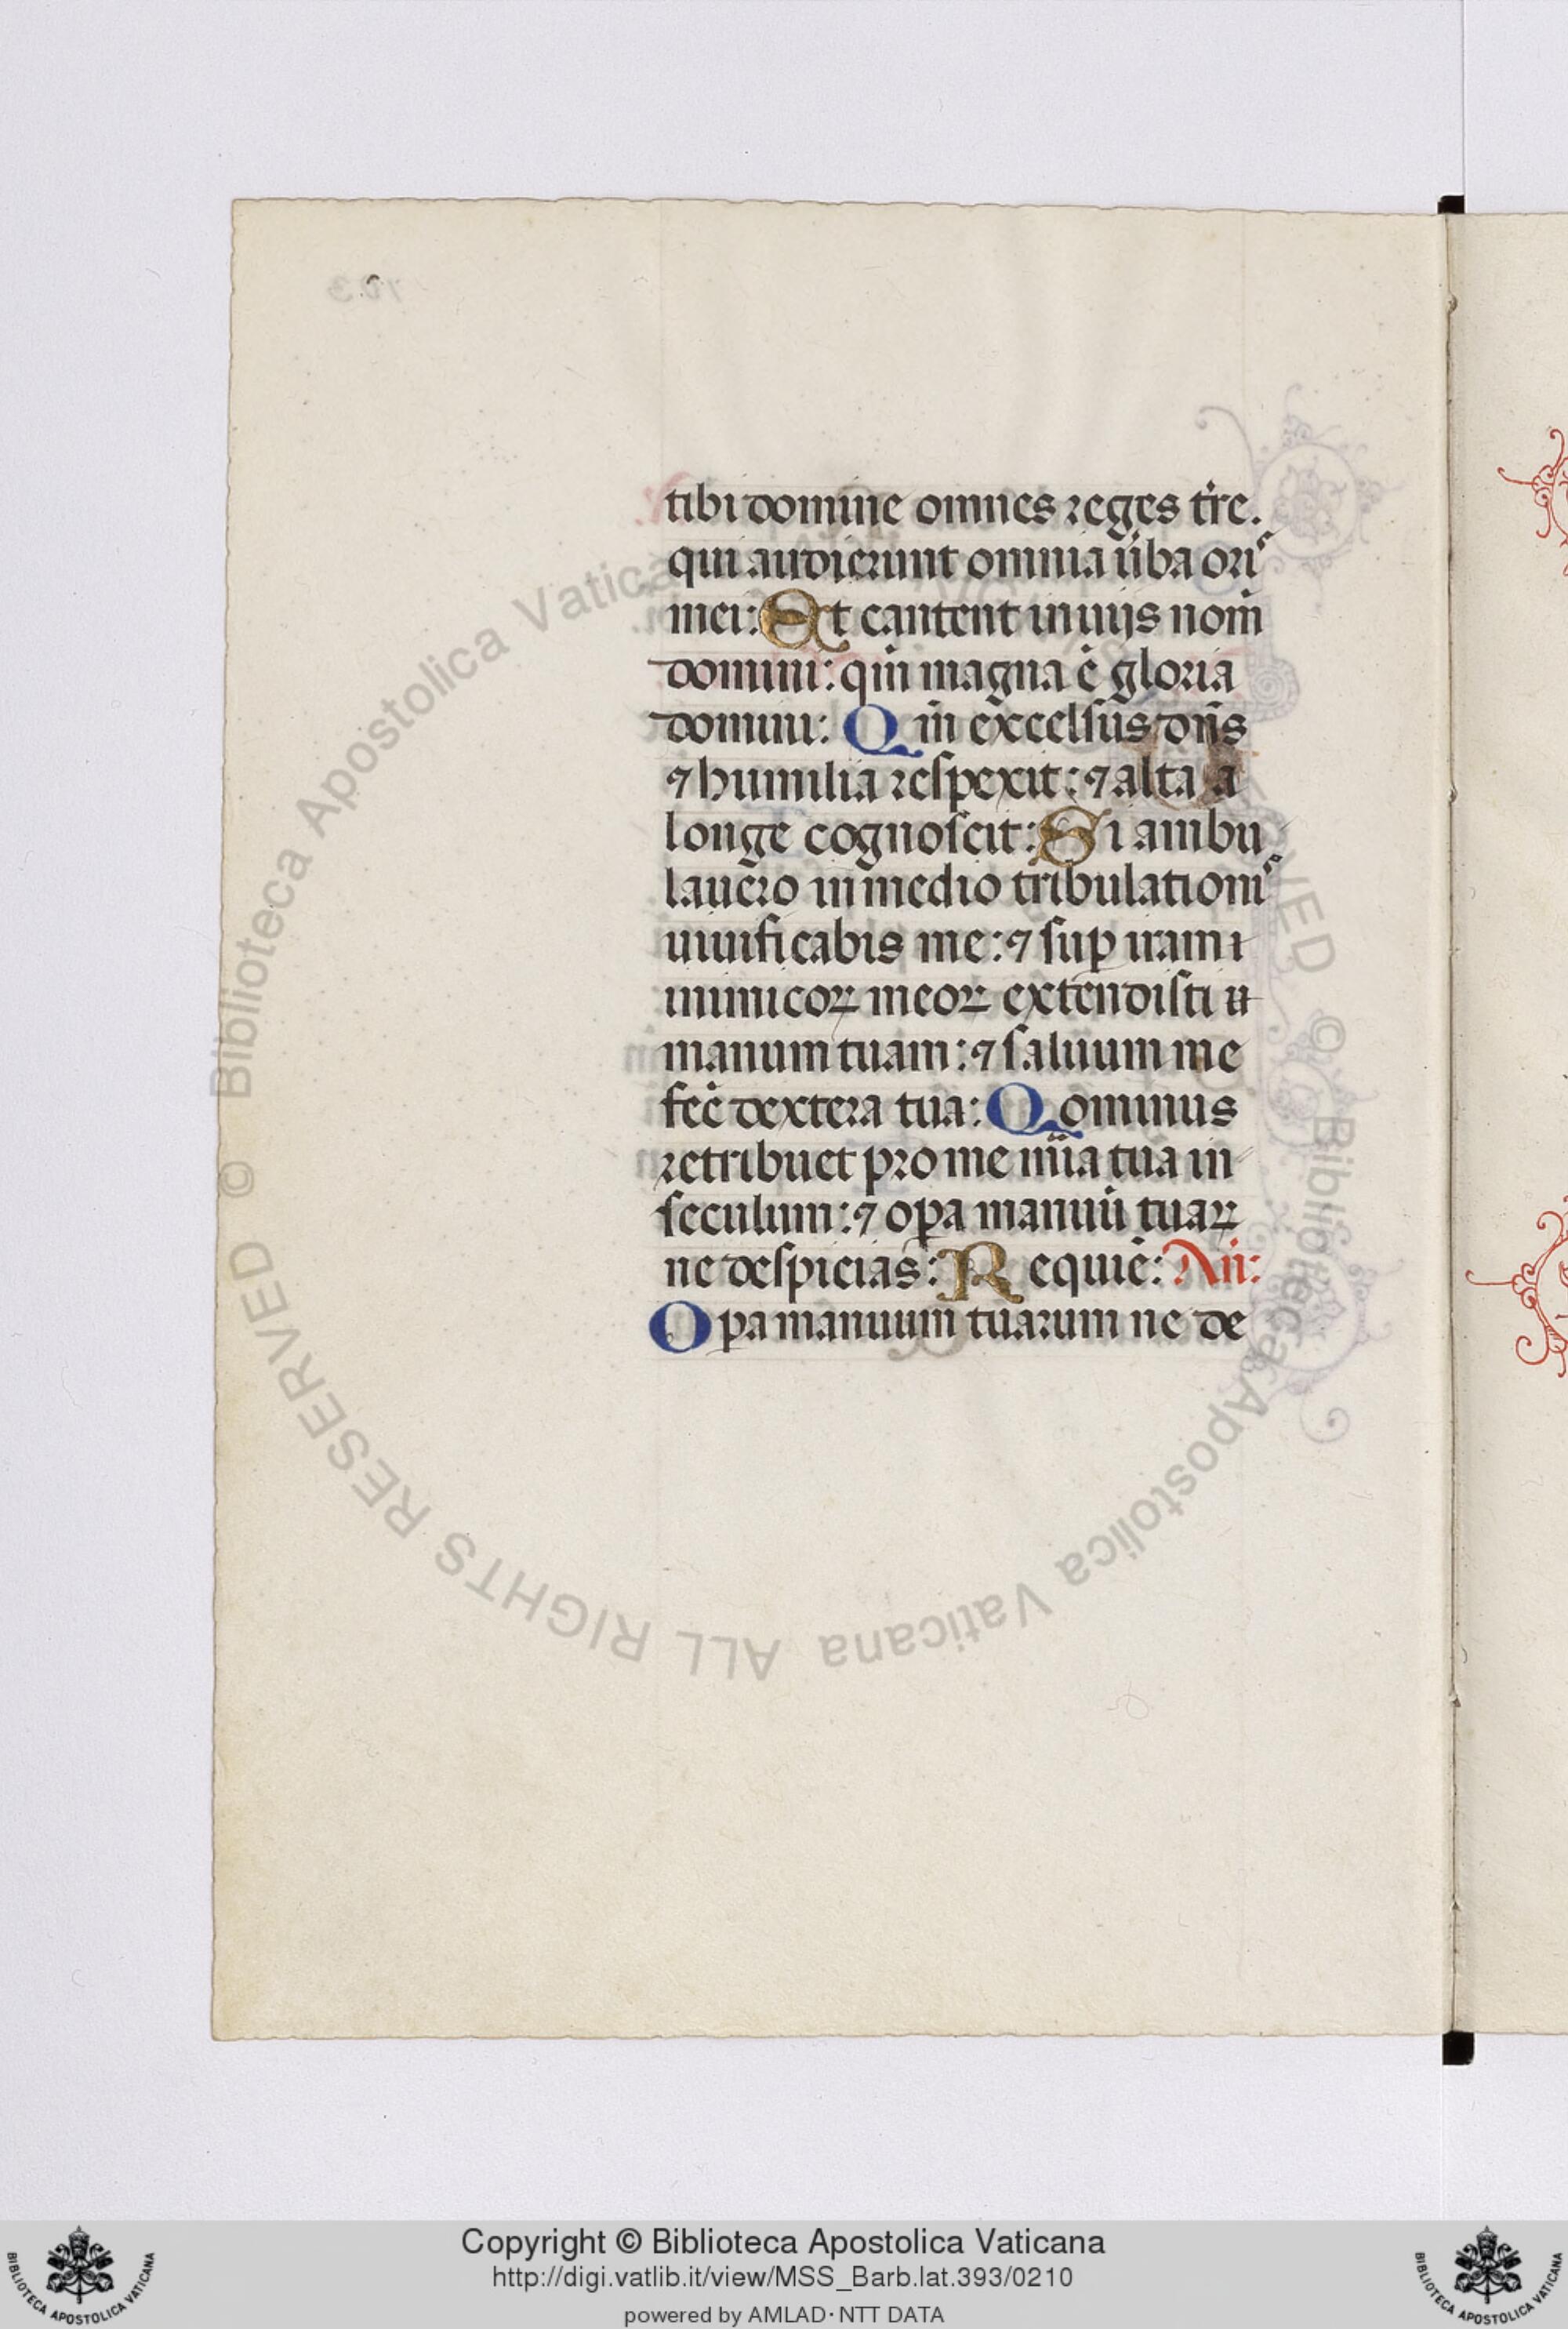 tibi domine omnes reges tr̄e.
qui audierunt omnia ūba oris
mei: Et cantent in uijs nom̄
domini: qm̄ magna ē gloria
domini: Qm̄ excelsus dn̄s
⁊ humilia respexit: ⁊ alta a
longe cognoscit: Si ambu
lauero in medio tribulationis
uiuificabis me: ⁊ suꝑ iram i
inimicoꝝ meoꝝ extendisti
manum tuam: ⁊ saluum me
fec̄ dextera tua: Qominus
retribuet pro me mīa tua in
seculum: ⁊ oꝑa manuū tuaꝝ
ne despicias: Requiē: An̄:
Oꝑa manuum tuarum ne de
© Biblioteca Apostolica Vaticana ALL RIGHTS RESERVED © Biblioteca Apostolica Vaticana ALL RIGHTS RESERVED
Copyright © Biblioteca Apostolica Vaticana
http://digi.vatlib.it/view/MSS_Barb.lat.393/0210
powered by AMLAD·NTT DATA
BIBLIOTECA APOSTOLICA VATICANA
BIBLIOTECA APOSTOLICA VATICANA